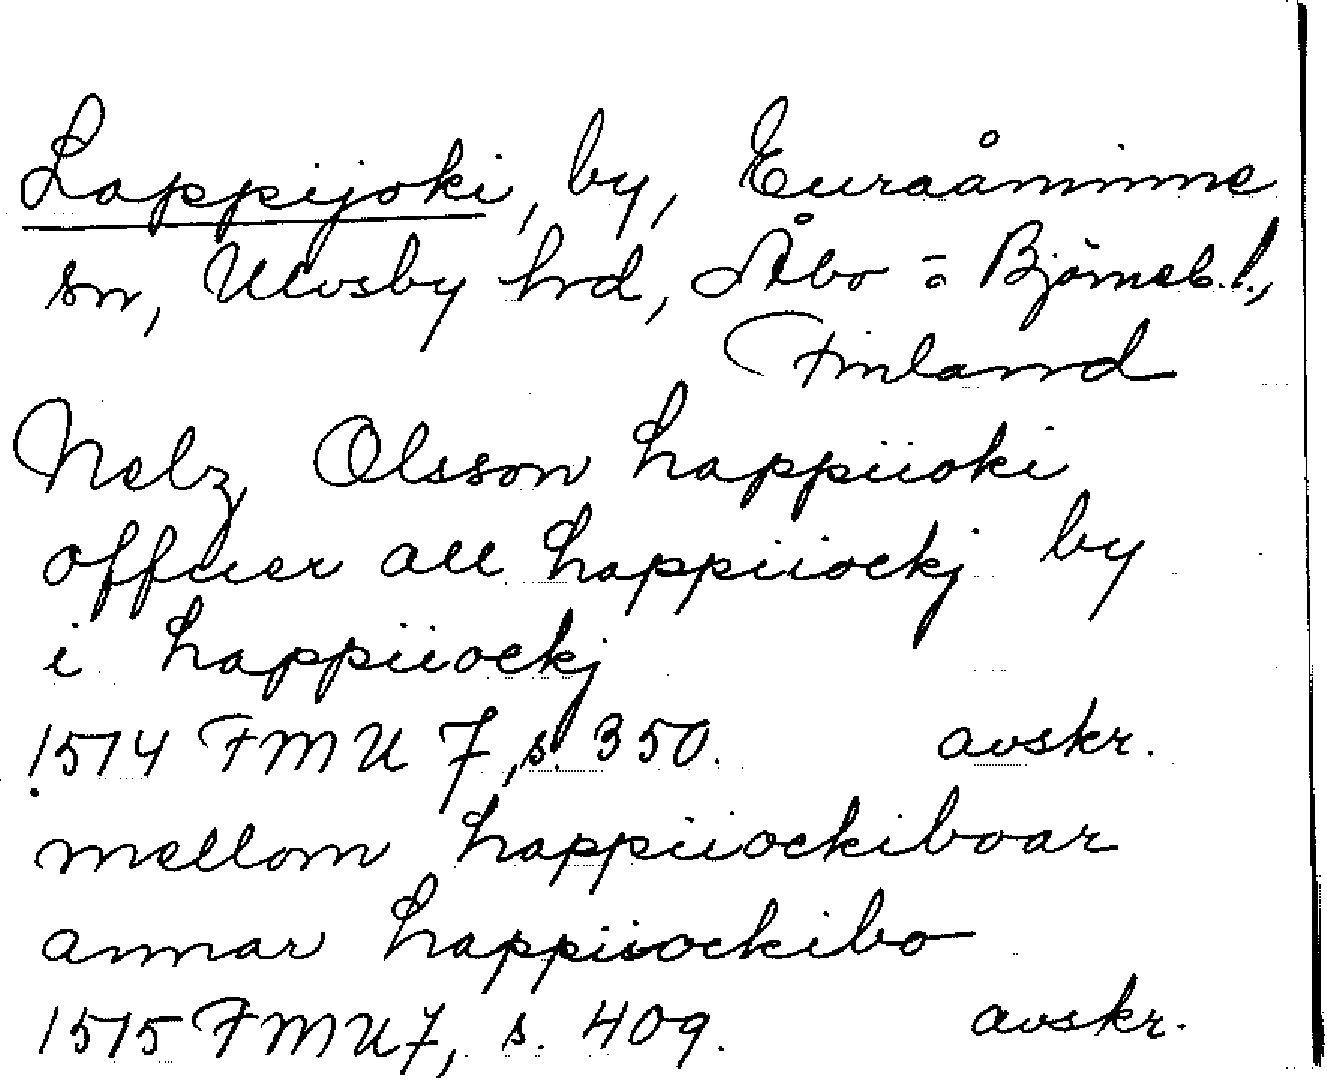 Lappijoki, by, Euraåminne
sn, Ulvsby hrd, Åbo = Björneb. l.,
Finland
Nelz Olsson Lappiioki
offuer all Lappiiockj by
i Lappiiockj
1514 FMU 7, s. 350. avskr.
mellom Lappiiockiboar
annar Lappiiockibo
1515 FMU 7, s. 409. avskr.